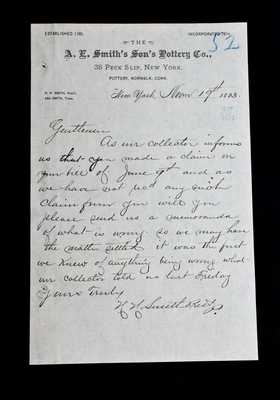 ESTABLISHED
INCORPORATED
52
THE
A. E. Smith's Son's Pottery Co.,
38 PECK SLIP, NEW YORK.
POTTERY, NORWALK, CONN.
New York, 19th
Gentlemen
As our collector informs
us that you made a claim on
your bill of June 9th and as
we have not rec'd any such
claim from you will you
please send us a memoranda
of what is wrong so we may have
the matter settled it was the first
we knew of anything being wrong what
our collector told us last Friday
Yours Truly
Smith